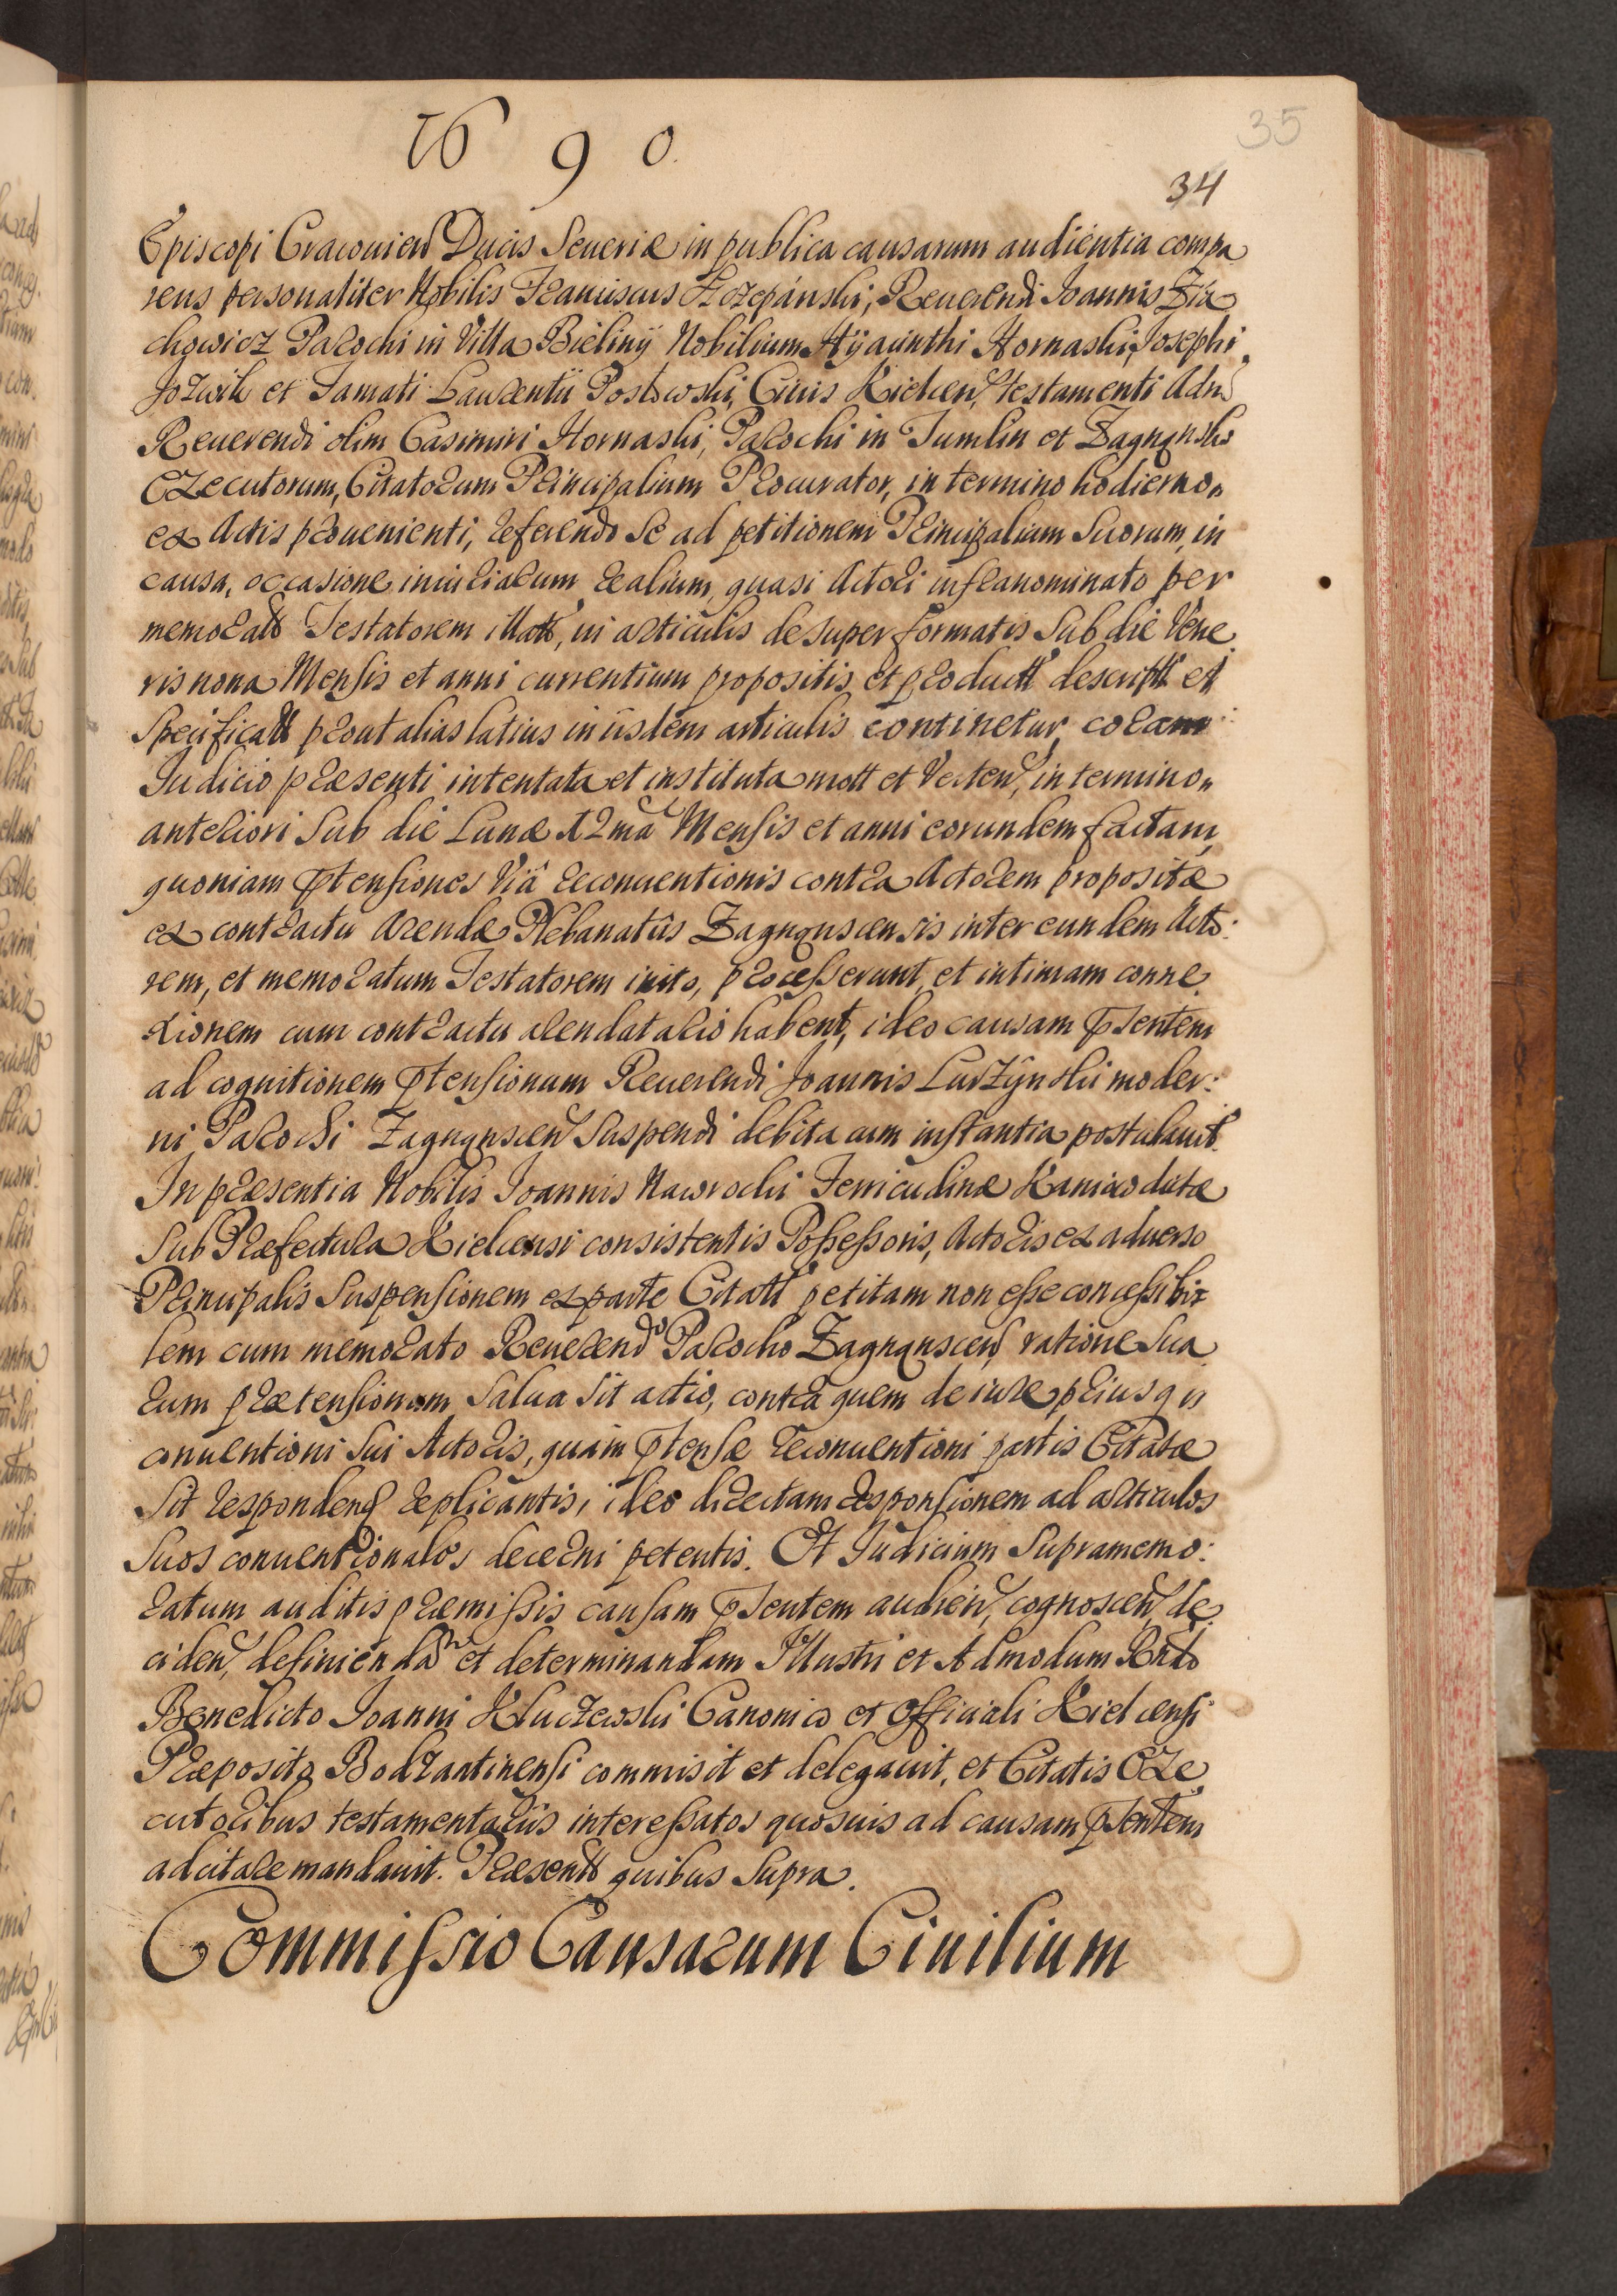 1690
35
34
Episcopi Cracouien Ducis Seueriæ in publica causarum audientia compa
rens personaliter Nobilis Franciscus Szczepánski, Reuerendi Joannis Sta
chowicz Parochi in Villa Bieliny Nobilium Hyacinthi Hornaski, Josephi
Jozwik et Famati Laurentii Postowski, Ciuis Kielcen, testamenti Adm
Reuerendi olim Casimiri Hornaski, Parochi in Tumlin et Zagnansko
Exccutorum, Citatorum Principalium Procurator, in termino hodierno
ex Actis prouenienti, referendo se ad petitionem Principalium Suorum, in
causa, occasione iniuriarum realium, quasi Actori infranominato per
memorato Testatorem illatt, in articulis desuper formatis Sub die Vene
ris nona Mensis et anni currentium propositis et productt descriptt et
Specificatt prout alias latius in iisdem articulis continetur, coram
Judicio præsenti intentata et instituta mott et Verten, in termino
anteriori Sub die Lunæ 12ma Mensis et anni eorundem factam,
quoniam ptensiones Viâ reconuentionis contra Actorem propositæ
ex contractu Arendæ Plebanatûs Zagnanscensis inter eundem Acto:
rem, et memoratum Testatorem inito, processerunt, et intimam conne
xionem cum contractu arendatario habent, ideo causam psentem
ad cognitionem ptensionum Reuerendi Joannis Luszynski moder:
ni Parochi Zagnanscen Suspendi debita cum instantia postulauit.
In præsentia Nobilis Joannis Nawrocki Ferricudinæ Kaniow dictæ
Sub Præfectura Kielcensi consistentis Possessoris, Actoris ex aduerso
Principalis Suspensionem ex parte Citatt petitam non esse concessibi
lem cum memorato Reuerendo Parocho Zagnanscen ratione Sua
rum prætensionum Salua sit actio, contra quem de iure prius
conuentioni Sui Actoris, quam ptensæ reconuentioni partis Citatæ
Sit respondend replicantis, ideo directam responsionem ad articulos
Suos conuentionales decerni petentis. Et Judicium Supramemo:
ratum auditis præmissis causam psentem audien, cognoscen, de
ciden, definiendam et determinandam Illustri et Admodum Rndo
Benedicto Joanni Kluczewski Canonico et Officiali Kielcensi
Præposito Bodzantinensi commisit et delegauit, et Citatis Exe
cutoribus testamentariis interessatos quosuis ad causam psentem
adcitare mandauit. Præsentt quibus Supra.
Commissio Causarum Ciuilium